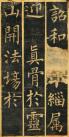 詔和尚率緇屬
迎真骨於靈
山開法場於